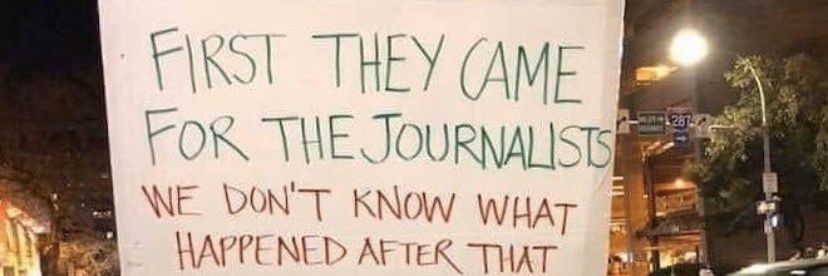 FIRST THEY CAME
FOR THE JOURNALISTS
WE DON'T KNOW WHAT
HAPPENED AFTER THAT
287